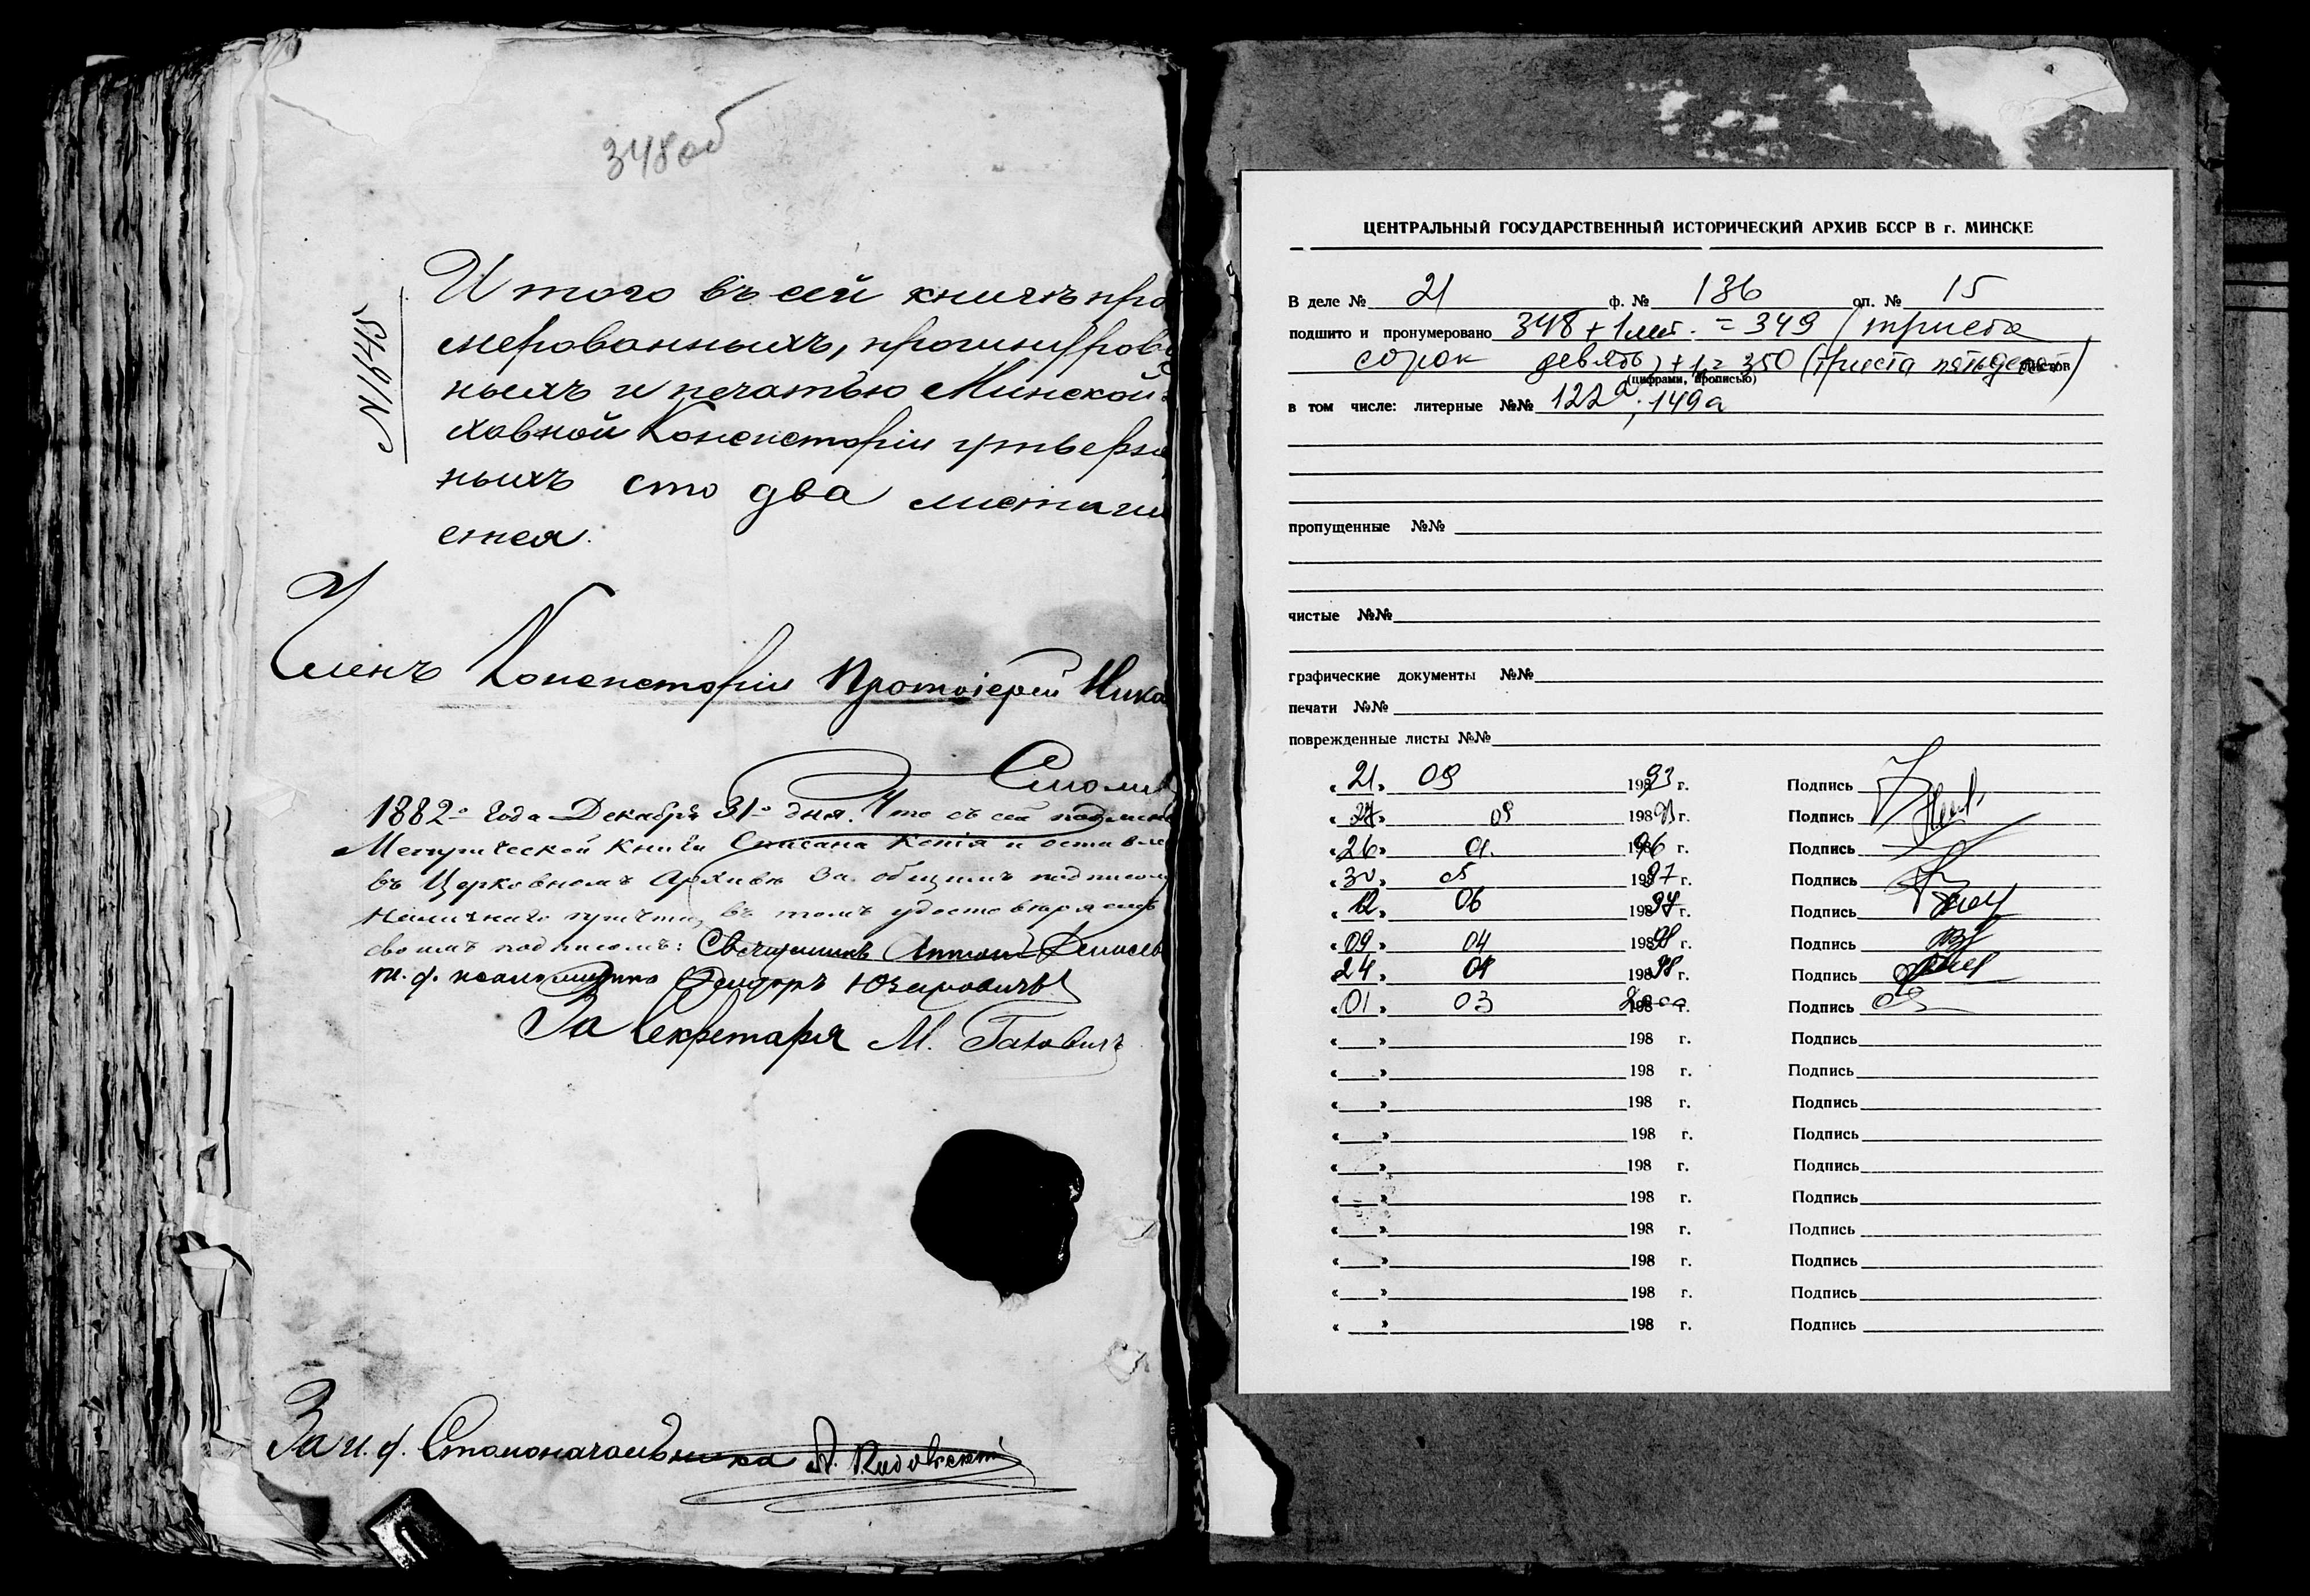 348об
N 16445
Итого въ сей книгѣ про
мерованныхъ, прошнурова
ныхъ и печатью Минской
ховной Консисторіи утверж
ныхъ сто два листа
Членъ Консисторіи Протоіерей Ника
1882-о Года Декабря 31-о дня. Что съ сей подлинн
Метрической Книги Списана Копія и оставле
въ Церковномъ Архивѣ За общимъ подписом
причта, въ томъ удостовѣряемъ
своимъ подписомъ: Священникъ Антоній
и. д. псаломщика Ѳеодоръ Юзефовичъ
За Секретаря М.
За и. д. Столоначальника А.
ЦЕНТРАЛЬНЫЙ ГОСУДАРСТВЕННЫЙ ИСТОРИЧЕСКИЙ АРХИВ БССР В г. МИНСКЕ
В деле № 21 ф. № 136 оп. № 15
подшито и пронумеровано 348 + 1 лит. = 349 (триста
сорок девять) + 1 = 350 (триста пятьдесят) листов
(цифрами, прописью)
в том числе: литерные №№ 122а; 149а
пропущенные №№
чистые №№
графические документы №№
печати №№
поврежденные листы №№
«21» 09 1993 г. Подпись
«27» 09 198 г. Подпись
«26» 96 г. Подпись
«30» 05 1997 г. Подпись
«12» 06 1997 г. Подпись
«09» 04 1998 г. Подпись
«24» 04 1998 г. Подпись
«01» 03 2000 г. Подпись
« » 198 г. Подпись
« » 198 г. Подпись
« » 198 г. Подпись
« » 198 г. Подпись
« » 198 г. Подпись
« » 198 г. Подпись
« » 198 г. Подпись
« » 198 г. Подпись
« » 198 г. Подпись
« » 198 г. Подпись